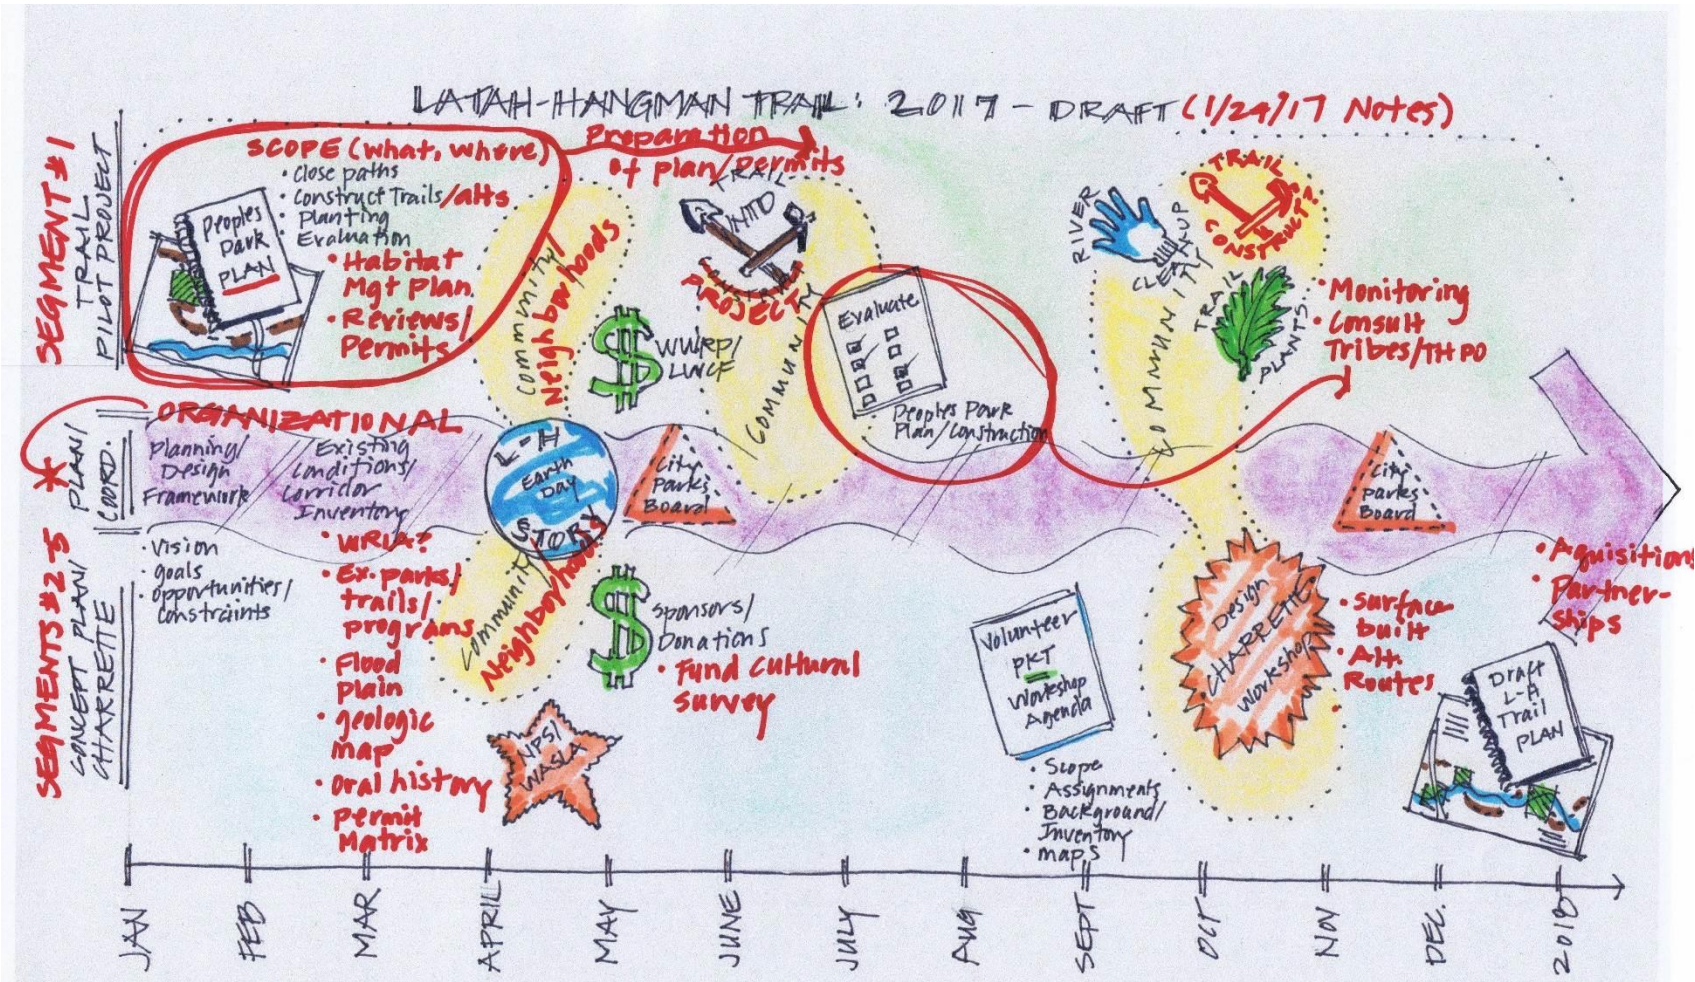 LATAH-HANGMAN TRAIL: 2017 - DRAFT (1/24/17 Notes)
SEGMENT #1
TRAIL
PILOT PROJECT
SCOPE (what, where)
• Close paths
• Construct Trails/alts
• Planting
Evaluation
• Habitat
Mgt Plan
• Reviews/
Permits
Peoples
Park
PLAN
Preparation
of plan/permits
Community/
Neighborhoods
TRAIL
INTO
PROJECT
WWRP/
LWCF
COMMUNITY
Evaluate
Peoples Park
Plan/Construction
RIVER
CLEANUP
TRAIL
CONSTRUCT?
COMMUNITY
TRAIL
PLANTS
• Monitoring
• Consult
Tribes/THPO
PLAN/
COORD.
ORGANIZATIONAL
Planning/
Design
Framework
Existing
Conditions/
Corridor
Inventory
L-H
Earth
Day
STORY
City
Parks
Board
City
Parks
Board
SEGMENTS #2-5
CONCEPT PLAN/
CHARRETTE
• Vision
• goals
• opportunities/
constraints
• WRIA?
• Ex. parks/
trails/
programs
• Flood
plain
• geologic
map
• oral history
• Permit
Matrix
Community/
Neighborhoods
NPS/
WASLA
Sponsors/
Donations
• Fund Cultural
survey
Volunteer
PKT
Workshop
Agenda
• Scope
• Assignments
• Background/
Inventory
• maps
Design
CHARRETTE
Workshop
• Surface
built
• Alt.
Routes
• Aquisitions
• Partner-
ships
Draft
L-H
Trail
PLAN
JAN
FEB
MAR
APRIL
MAY
JUNE
JULY
AUG
SEPT
OCT
NOV
DEC.
2018